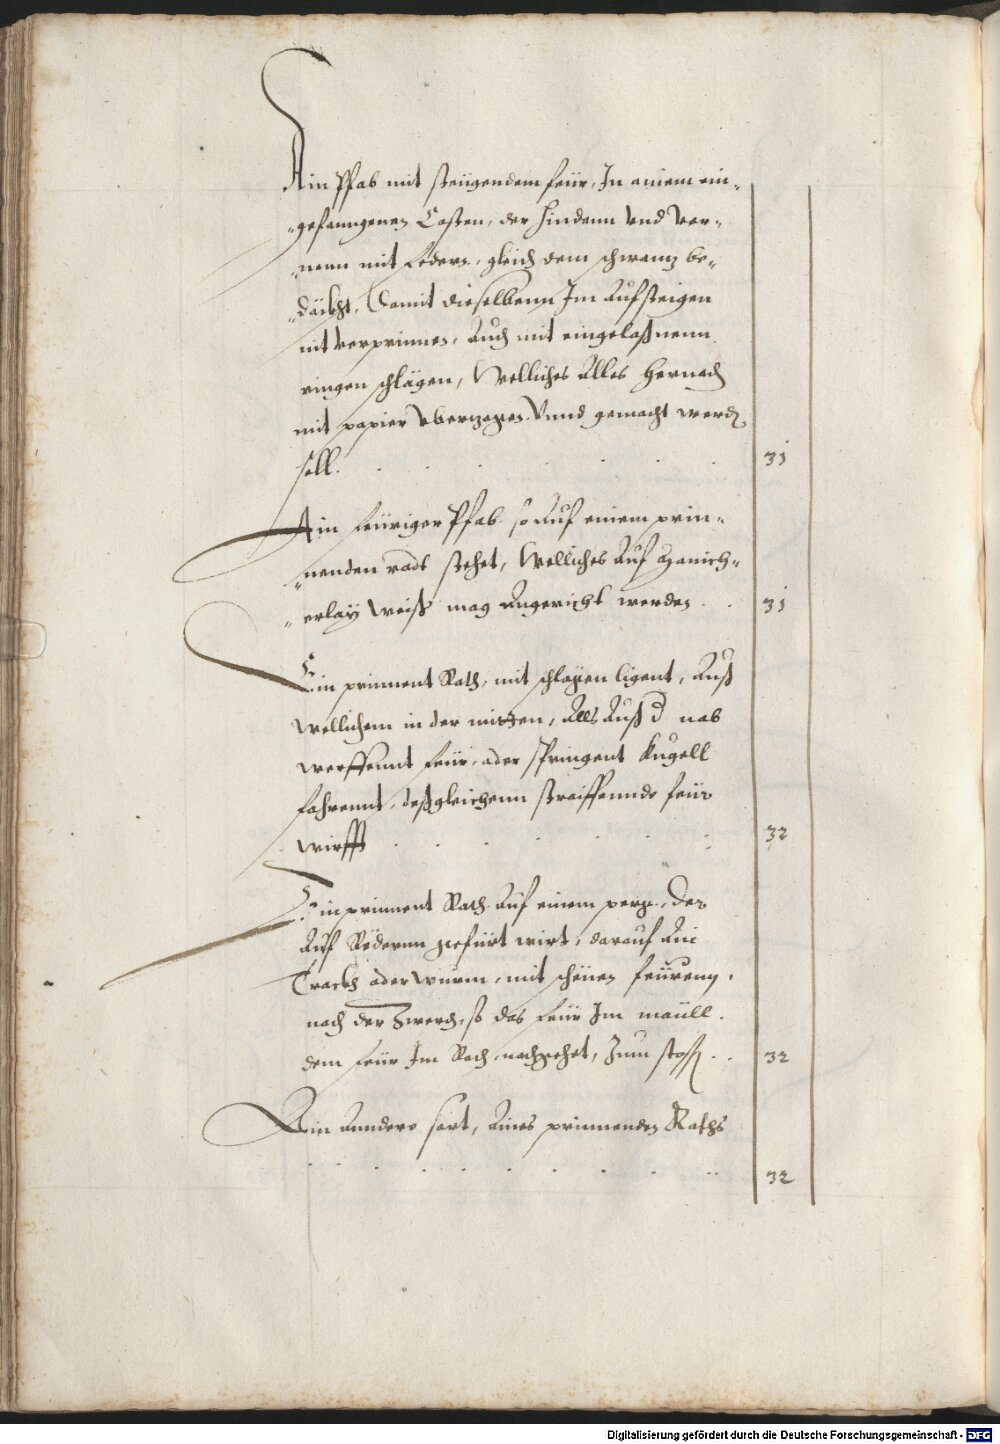 Ain Pfab mit steigendem feür, In ainem ein-
gefanngenen Casten, der hindenn vnd vor-
nenn mit federn, gleich dem schwantz be-
däckht, Damit dieselbenn Im aufsteigen
nit verprinnen, auch mit eingelaßnenn
ringen schlägen, Welliches alles hernach
mit papier vberzogen vnnd gemacht werdn
soll. 31
Ain feüriger Pfab so auf einem prin-
nenden radt stehet, Welliches auf manich-
erlay weiß mag angericht werden. 31
Ein prinnent Rath, mit schlägen ligent, auß
wellichem in der mitten, alls auß d nab
werffennt feür, oder springent Kugell
fahrennt, deßgleichenn straiffennde feür
wirfft 32
Ein prinnent Rath auf einem perg, der
auf Rädernn gefürt wirt, darauf ain
Trackh oder wurm, mit schönen
nach der Zwerch, so das feür Im maull
dem feür Im Rath nachgehet, Zum 32
Ein anndere sort, aines prinnenden Raths
32
Digitalisierung gefördert durch die Deutsche Forschungsgemeinschaft - DFG